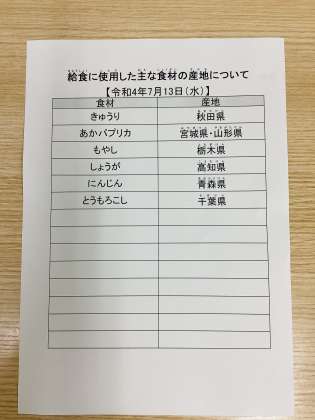 給食に使用した主な食材の産地について
【令和4年7月13日(水)】
食材 産地
きゅうり 秋田県
あかパプリカ 宮城県・山形県
もやし 栃木県
しょうが 高知県
にんじん 青森県
とうもろこし 千葉県